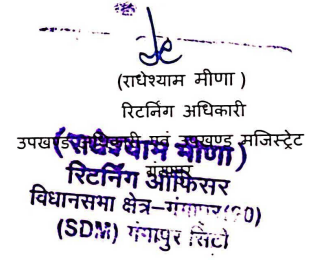 (राधेश्याम मीणा )
रिटर्निंग अधिकारी
उपखण्ड अधिकारी एवं उपखण्ड मजिस्ट्रेट
गंगापुर
(राधेश्याम मीणा)
रिटर्निंग ऑफिसर
विधानसभा क्षेत्र-गंगापुर(90)
(SDM) गंगापुर सिटी